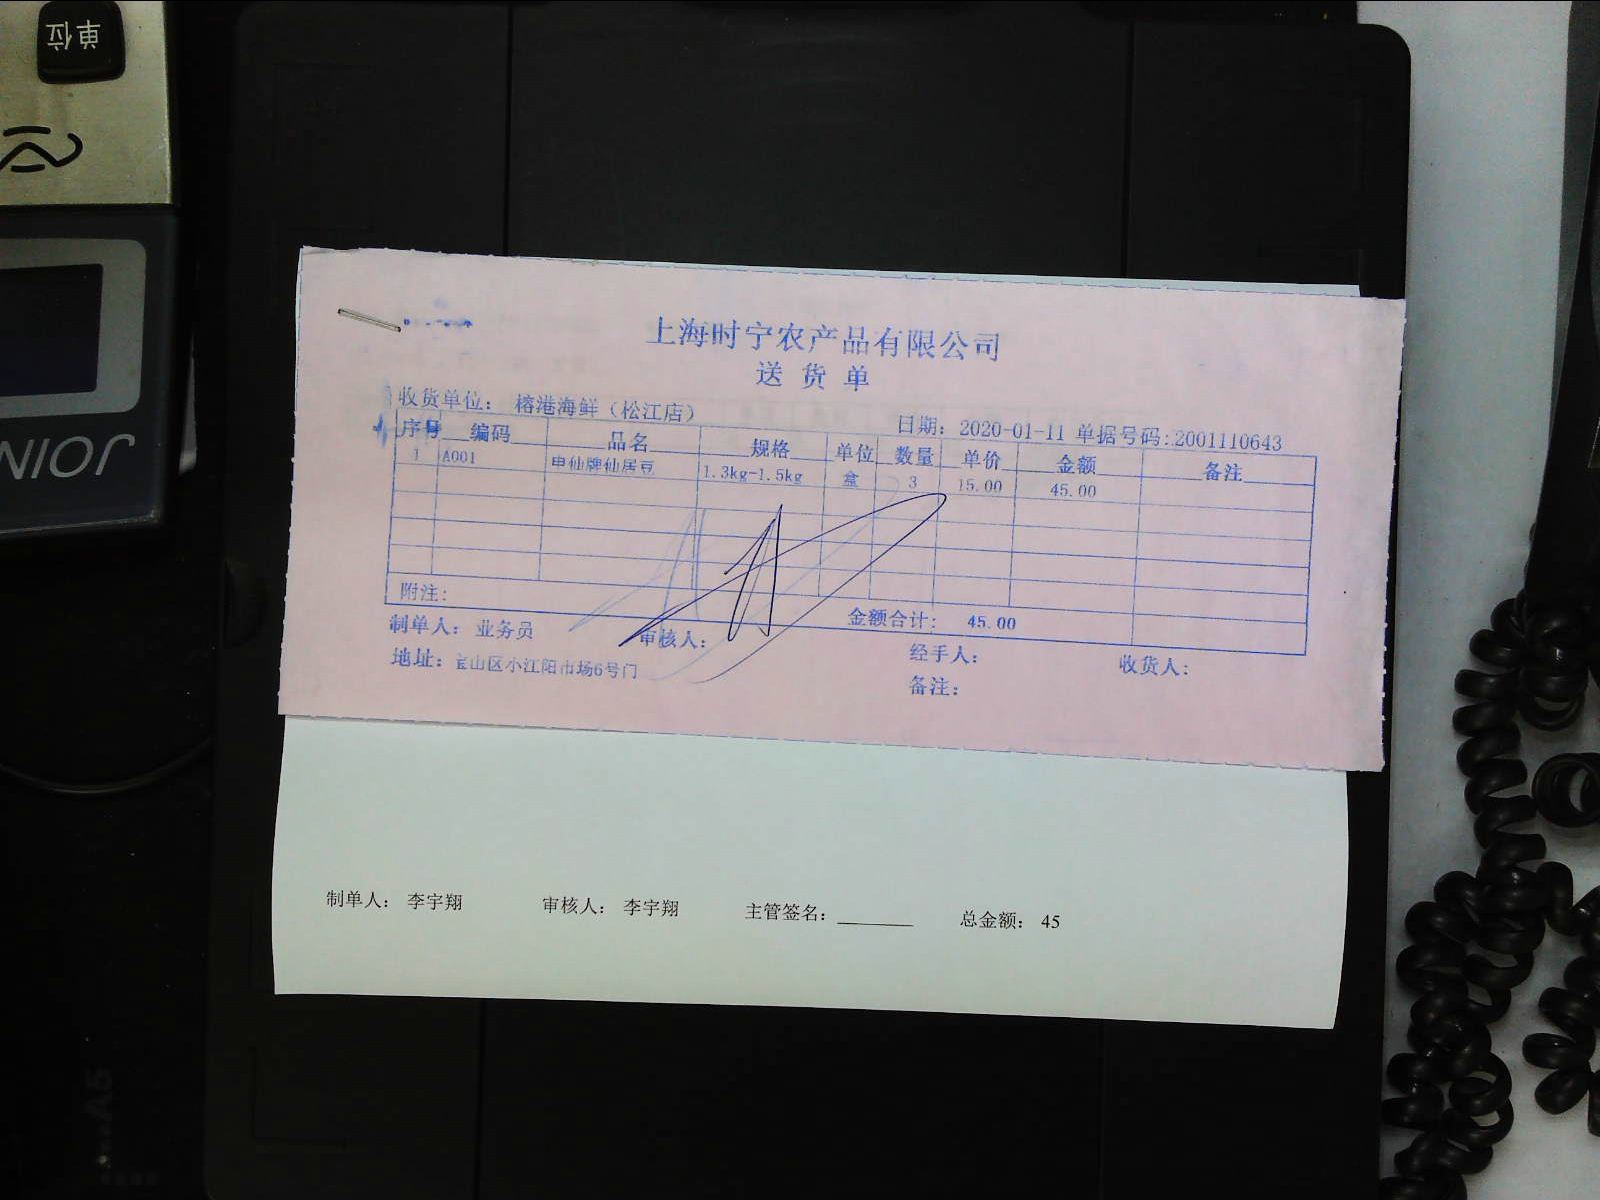 単位
JOIN
上海时宁农产品有限公司
送 货 单
收货单位: 榕港海鲜(松江店) 日期: 2020-01-11 单据号码:2001110643
序号 编码 品名 规格 单位 数量 单价 金额 备注
1 A001 申仙牌仙居豆 1.3kg-1.5kg 盒 3 15.00 45.00
附注: 金额合计: 45.00
制单人: 业务员 审核人: 经手人: 收货人:
地址: 宝山区小江阳市场6号门 备注:
制单人: 李宇翔 审核人: 李宇翔 主管签名:________ 总金额: 45